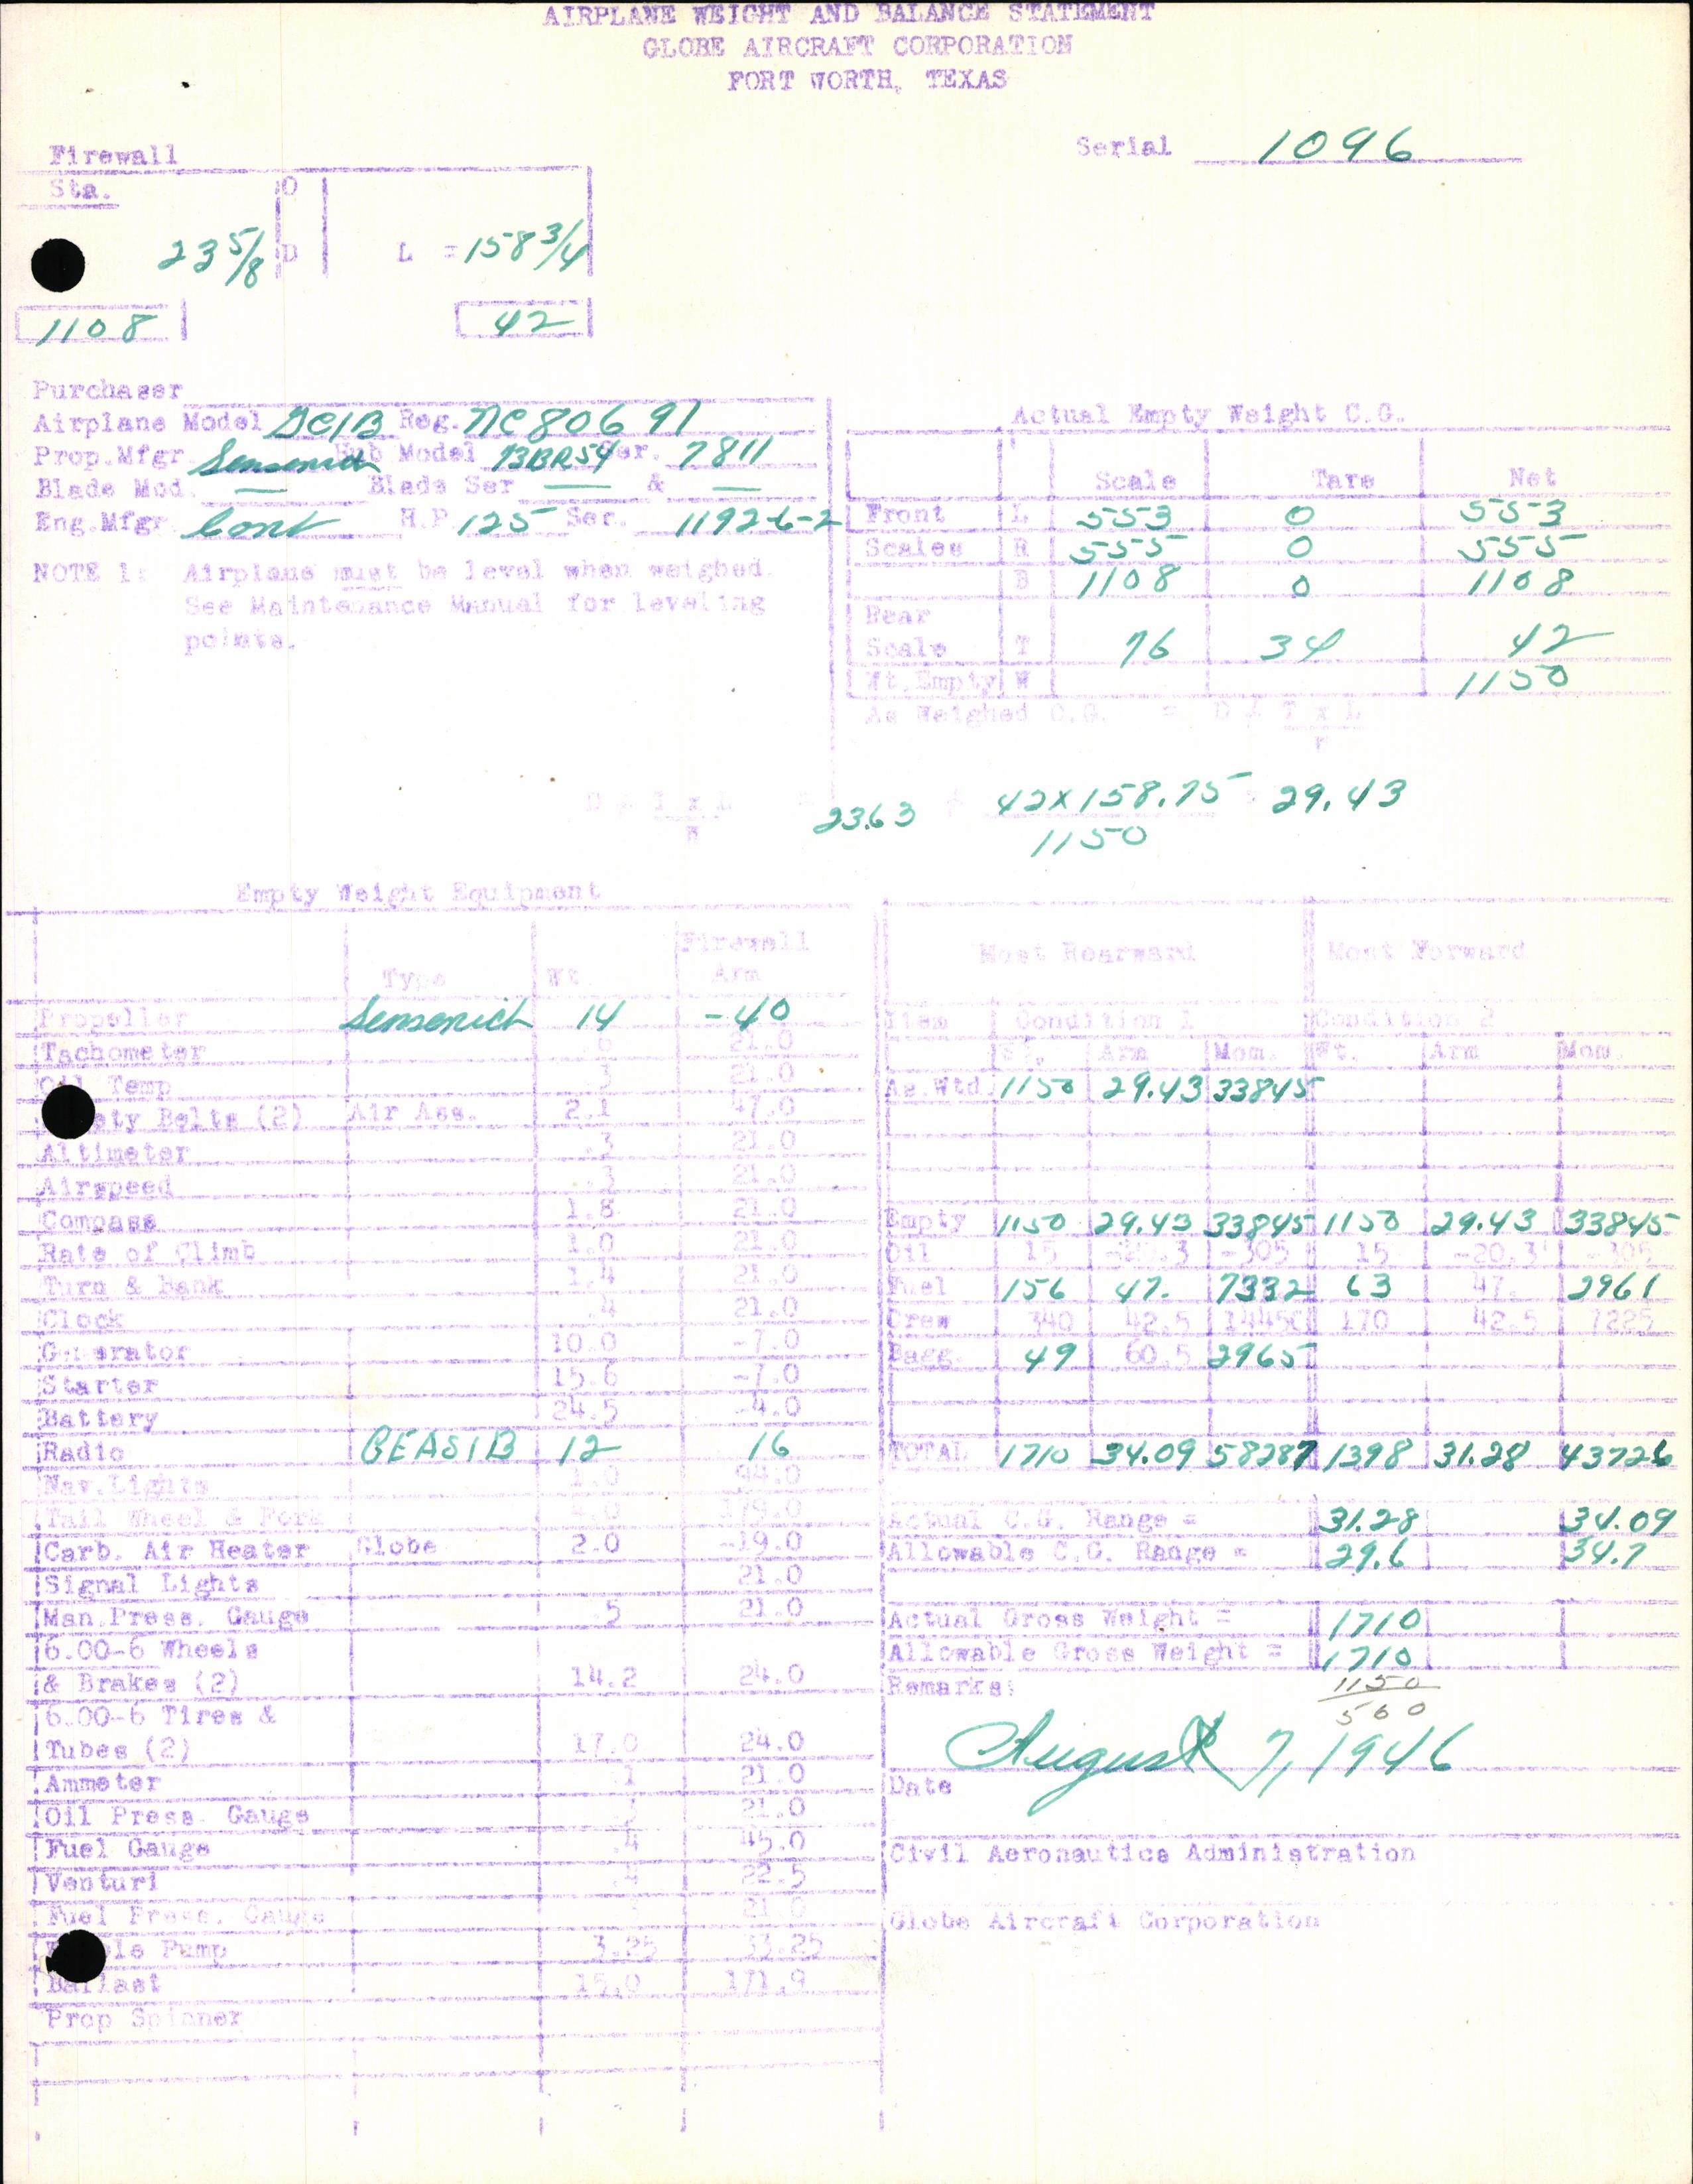 AIRPLANE WEIGHT AND BALANCE STATEMENT
GLOBE AIRCRAFT CORPORATION
FORT WORTH, TEXAS
Serial 1096
Firewall
Sta.
O
23 5/8 D L = 158 3/4
1108 42
Purchaser
Airplane Model GC1B Reg. NC80691
Prop.Mfgr Sensenich Hub Model 73BR54 Ser. 7811
Blade Mod. — Blade Ser — & —
Eng.Mfgr. Cont H.P. 125 Ser. 11926-2
NOTE 1: Airplane must be level when weighed.
See Maintenance Manual for leveling
points.
Actual Empty Weight C.G.
Scale Tare Net
Front L 553 0 553
Scales R 555 0 555
B 1108 0 1108
Rear
Scale T 76 34 42
Wt.Empty W 1150
As Weighed C.G. = D + T x L
D + T x L 23.63 42 x 158.75 29.43
W 1150
Empty Weight Equipment
Type Wt. Firewall Arm
Propeller Sensenich 14 -40
Tachometer 21.0
Oil Temp .3 21.0
ety Belts (2) Air Ass. 2.1 47.0
Altimeter .3 21.0
Airspeed .3 21.0
Compass 1.8 21.0
Rate of Climb 1.0 21.0
Turn & bank 1.4 21.0
Clock .4 21.0
Generator 10.0 -7.0
Starter 15.6 -7.0
Battery 24.5 -4.0
Radio GEAS1B 12 16
Nav.Lights 1.0 94.0
Tail Wheel & Fork 179.0
Carb. Air Heater Globe 2.0 -19.0
Signal Lights 21.0
Man.Press. Gauge .5 21.0
6.00-6 Wheels
& Brakes (2) 14.2 24.0
6.00-6 Tires &
Tubes (2) 17.0 24.0
Ammeter .1 21.0
Oil Press. Gauge 21.0
Fuel Gauge .4 45.0
Venturi .4 22.5
Fuel Press. Gauge 21.0
le Pump 3.25 33.25
Ballast 15.0 171.9
Prop Spinner
Most Rearward Most Forward
Item Condition 1 Condition 2
Wt. Arm Mom. Wt. Arm Mom.
As.Wtd. 1150 29.43 33845
Empty 1150 29.43 33845 1150 29.43 33845
Oil 15 -20.3 -305 15 -20.3 -305
Fuel 156 47. 7332 63 47. 2961
Crew 340 42.5 14450 170 42.5 7225
Bagg. 49 60.5 2965
TOTAL 1710 34.09 58287 1398 31.28 43726
Actual C.G. Range = 31.28 34.09
Allowable C.G. Range = 29.6 34.7
Actual Gross Weight = 1710
Allowable Gross Weight = 1710
Remarks: 1150
560
August 7, 1946
Date
Civil Aeronautics Administration
Globe Aircraft Corporation